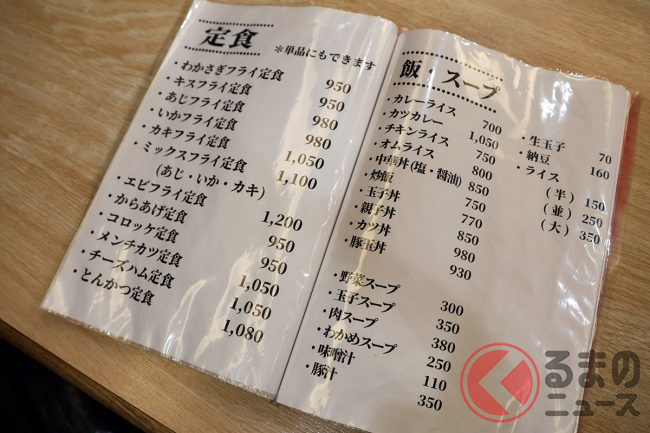 定食
＊単品にもできます
・わかさぎフライ定食 950
・キスフライ定食 950
・あじフライ定食 980
・いかフライ定食 980
・カキフライ定食 1,050
・ミックスフライ定食 1,100
(あじ・いか・カキ)
・エビフライ定食 1,200
・からあげ定食 950
・コロッケ定食 950
・メンチカツ定食 1,050
・チーズハム定食 1,050
・とんかつ定食 1,080
飯・スープ
・カレーライス 700
・カツカレー 1,050
・チキンライス 750
・オムライス 800
・中華丼(塩・醤油) 850
・炒飯 750
・玉子丼 770
・親子丼 850
・カツ丼 980
・豚玉丼 930
・野菜スープ 300
・玉子スープ 350
・肉スープ 380
・わかめスープ 250
・味噌汁 110
・豚汁 350
・生玉子 70
・納豆 160
・ライス (半) 150
(並) 250
(大) 350
くるまの
ニュース